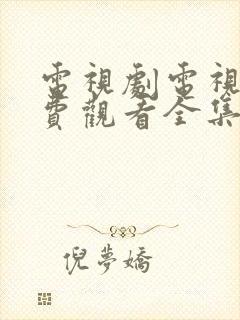 電視劇電視
費觀看全集
倪夢嬌